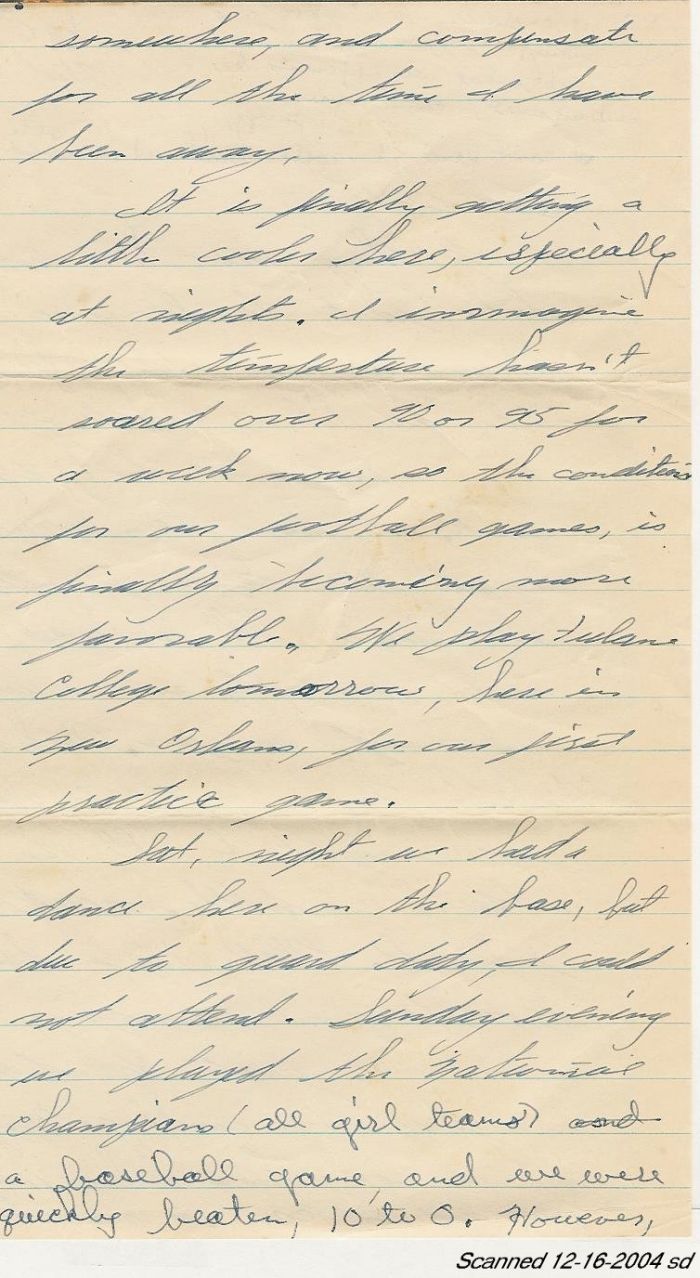 somewhere, and compensate
for all the time I have
been away.
It is finally getting a
little cooler here, especially
at nights. I immagine
the temperture hasn't
soared over 90 or 95 for
a week now, so the conditions
for our football games, is
finally becoming more
favorable. We play Tulane
College tomorrow, here in
New Orleans, for our first
practice game.
Sat, night we had a
dance here on the base, but
due to guard duty, I could
not attend. Sunday evening
we played the National
Champions (all girl teams) and
a baseball game, and we were
quickly beaten, 10 to 0. However,
Scanned 12-16-2004 sd